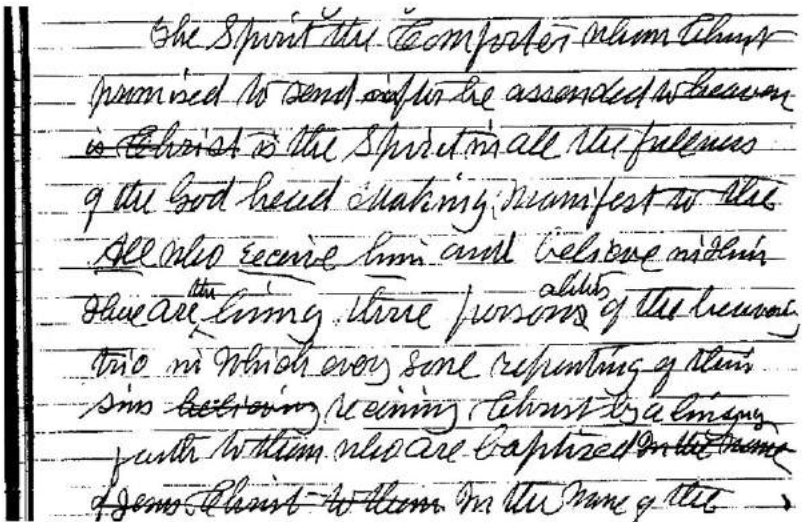 The Spirit the Comforter whom Christ
promised to send after he assended to heaven
is Christ is the Spirit in all the fullness
of the God head Making manifest to the
All who receive him and believe in Him
There are the living three personalities of the heavenly
trio in which every soul repenting of their
sins believing receiving Christ by a living
faith to them who are baptized In the name
of Jesus Christ to them In the name of the